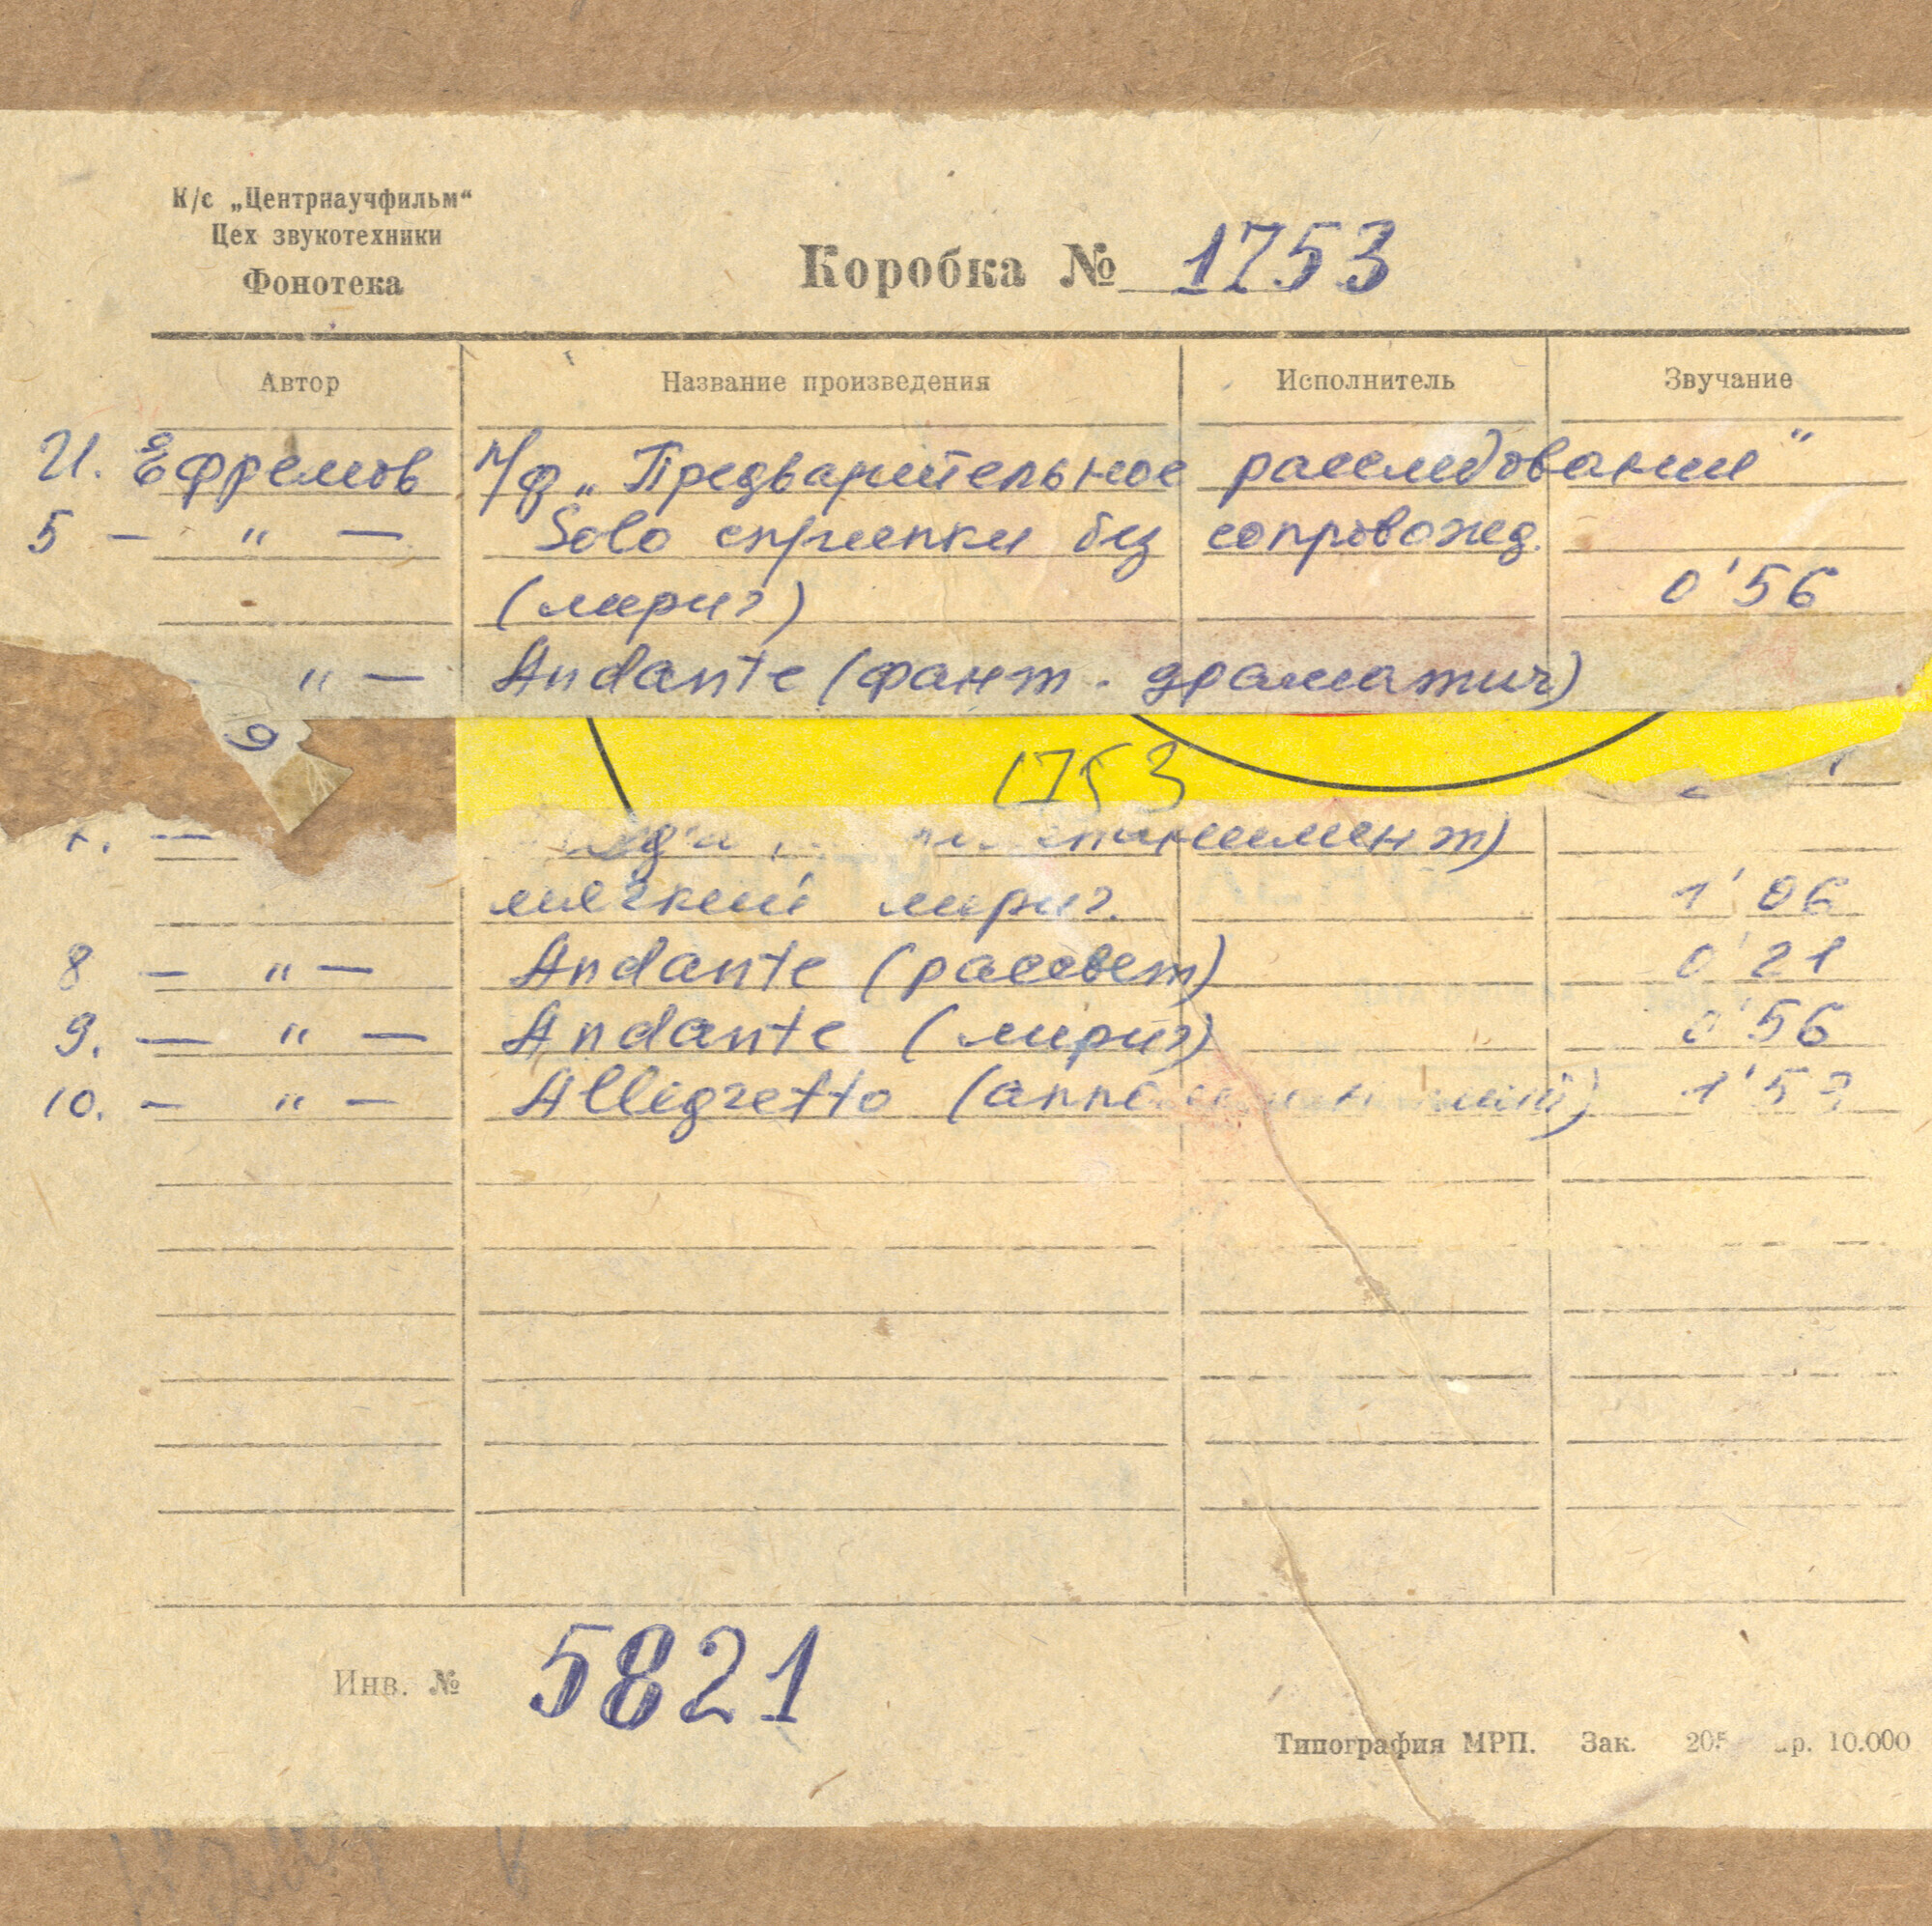 К/с „Центрнаучфильм“
Цех звукотехники
Фонотека
Коробка № 1753
Автор Название произведения Исполнитель Звучание
И. Ефремов М/ф „Предварительное расследование"
5 — " — Solo скрипки без сопровожд.
(лирич) 0'56
" — Andante (фант. драматич)
6
1753
мягкий лирич. 1'06
8 — " — Andante (рассвет) 0'21
9. — " — Andante (лирич) 0'56
10. — " — Allegretto
Инв. № 5821
Типография МРП. Зак. 10.000